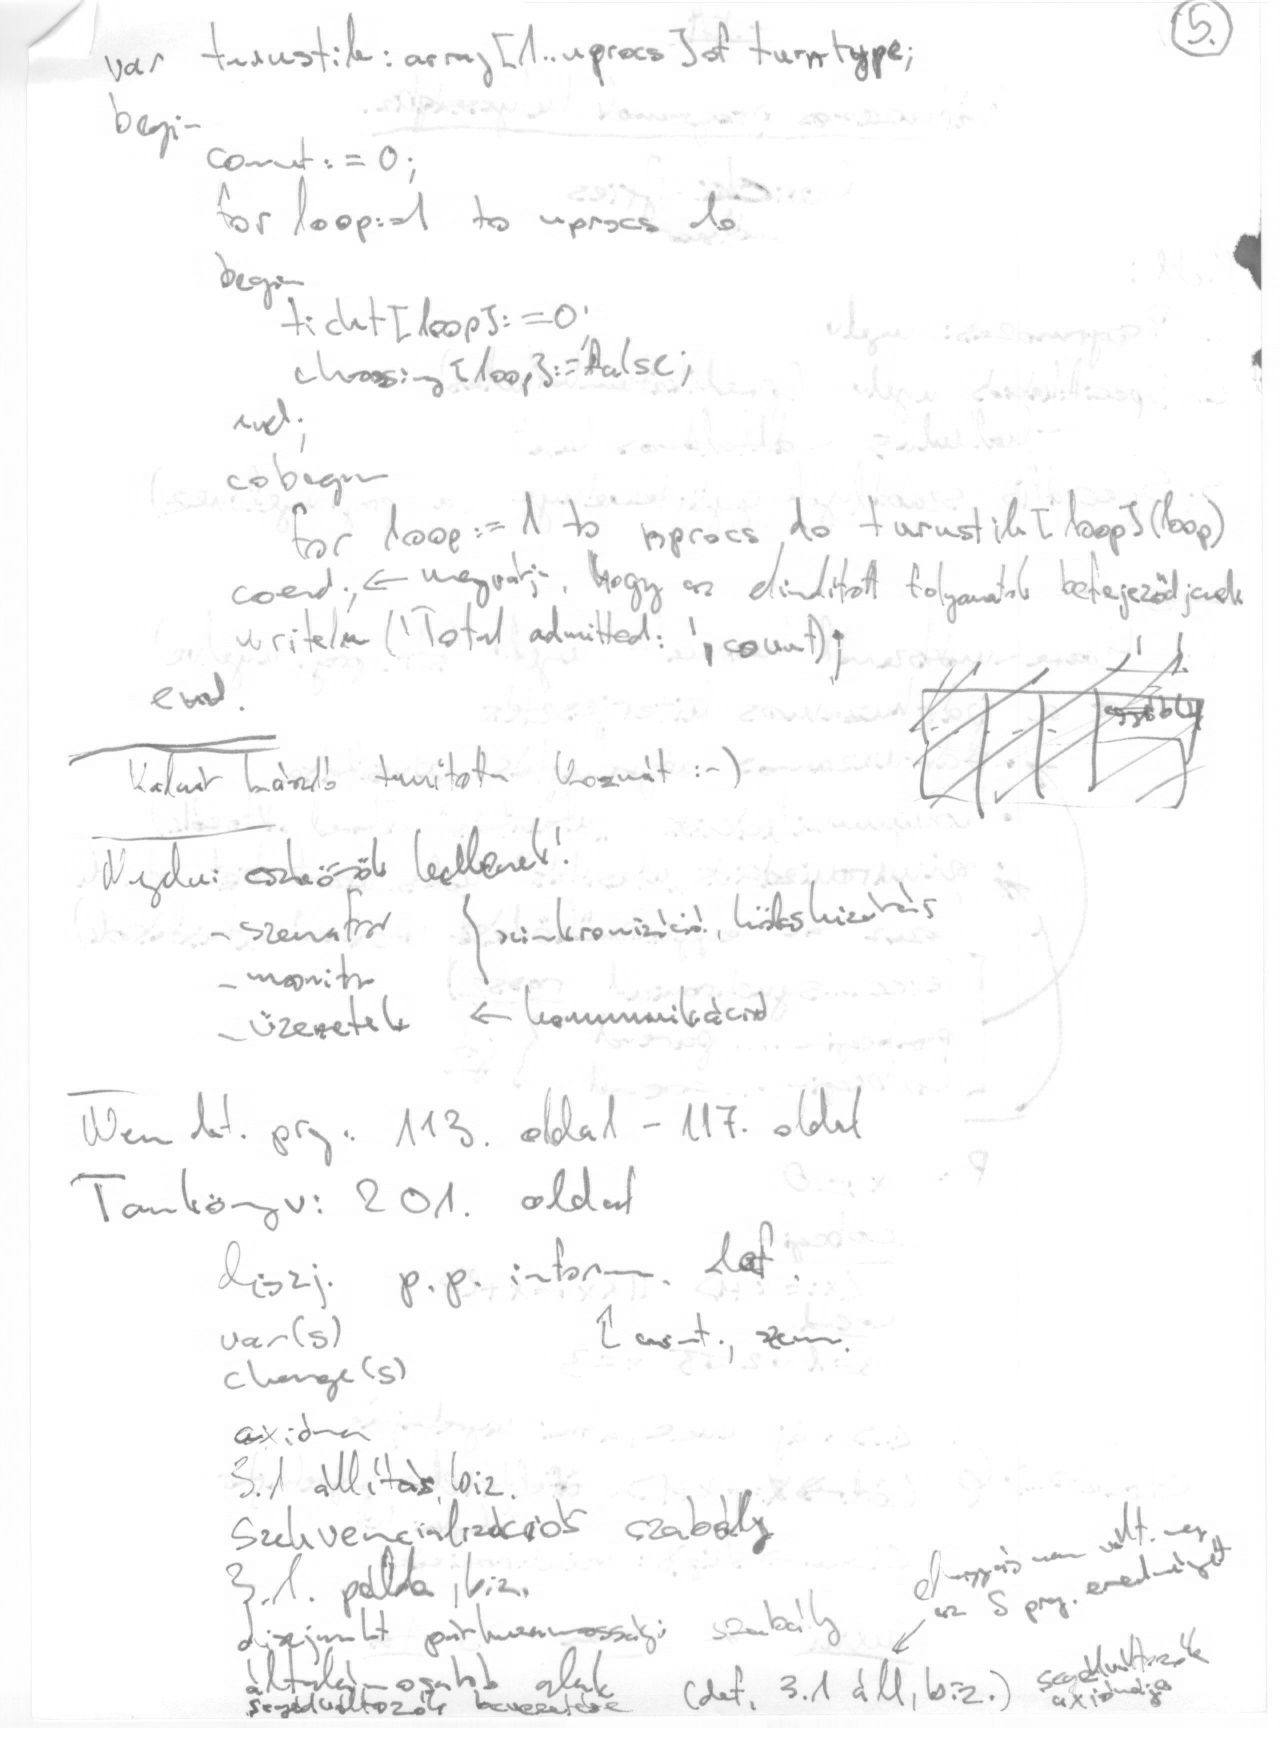 5.
var turnstile: array[1..nprocs] of turntype;
begin
count:=0;
for loop:=1 to nprocs do
begin
ticket[loop]:=0;
choosing[loop]:=false;
end;
cobegin
for loop:=1 to nprocs do turnstile[loop](loop)
coend; ← megvárja, hogy az elindított folyamatok befejeződjenek
writeln('Total admitted: ', count);
end.
tanította Kozmát :-)
eszközök kellenek!
- szemafor
- monitor
} szinkronizáció, kölcs. kizárás
- üzenetek ← kommunikáció
prg.: 113. oldal - 117. oldal
Tankönyv: 201. oldal
diszj. p.p. inform. def.
var(s)
change(s)
axióma
3.1 állítás, biz.
szekvencializációs szabály
3.1. példa, biz.
diszjunkt párhuzamossági szabály
általánosabb alak (def, 3.1 áll, biz.)
segédváltozók bevezetése
elhagyás nem vált. meg
az S prg. eredményét
segédváltozók
axiómája